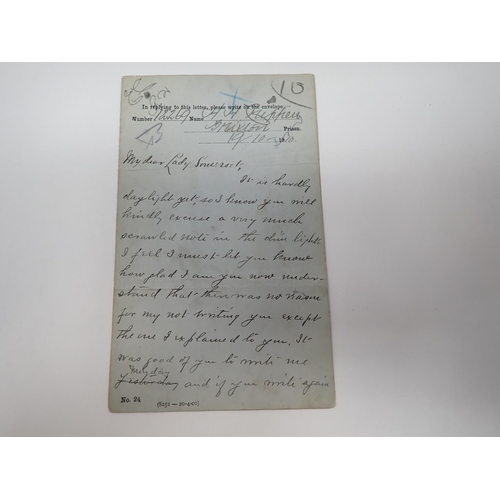 10
In replying to this letter, please write on the envelope—
Number 12269 Name H. H. Crippen
Prison.
19/10/1910
My dear Lady Somerset,
It is hardly
daylight yet, so I know you will
kindly excuse a very much
scrawled note in the dim light.
I feel I must let you know
how glad I am you now under-
stand that there was no reason
for my not writing you except
the one I explained to you. It
was good of you to write me
Yesterday and if you write again
No. 24 (6252—20-4-01)